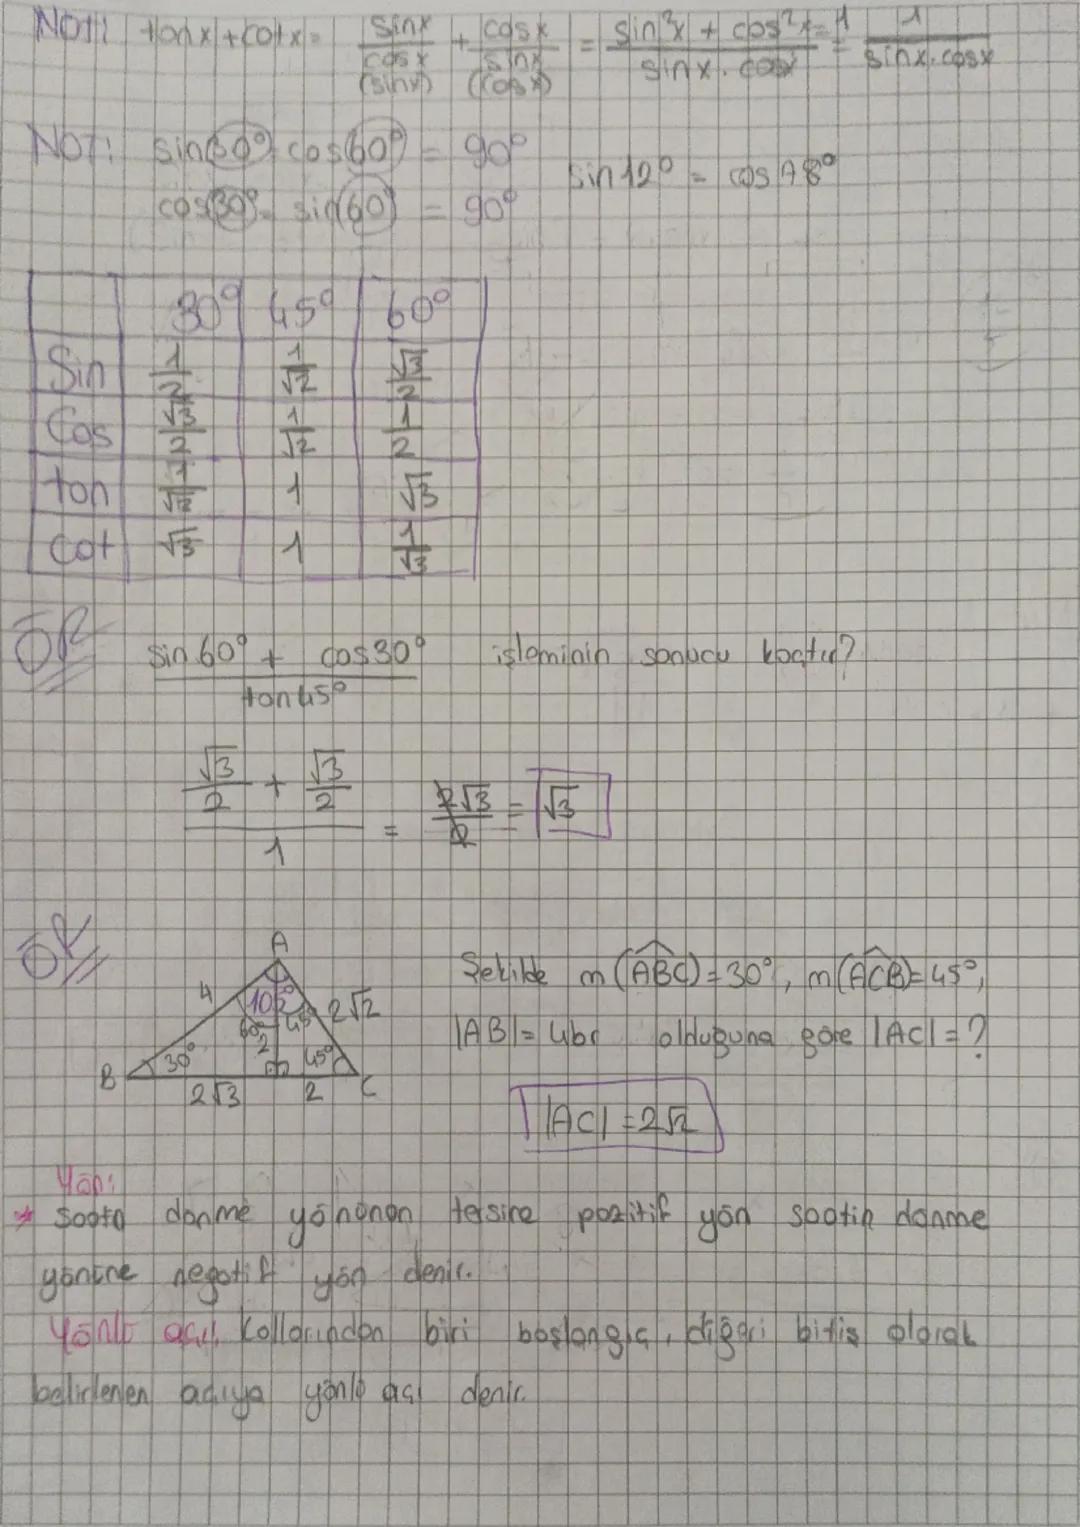 NOT: tanx+cotx= sinx/cosx (sinx) + cosx/sinx (cosx) = sin²x + cos²x=1/sinx.cosx = 1/sinx.cosx
NOT: sin30° cos60° = 90°
sin12° = cos78°
cos30° = sin60 = 90°
30° 45° 60°
Sin 1/2 1/√2 √3/2
Cos √3/2 1/√2 1/2
tan 1 √3
cot √3 1 1/√3
ÖR
sin60° + cos30° / tan45° işleminin sonucu kaçtır?
√3/2 + √3/2 / 1 = 2√3/2 = √3
ÖR
A
4 105° 2√2
60° 45°
2
B 30° 45° C
2√3 2
Şekilde m(ABC)=30°, m(ACB)=45°,
|AB|=4br olduğuna göre |AC|=?
|AC|=2√2
Yön:
* Saata dönme yönünün tersine pozitif yön saatin dönme
yönüne negatif yön denir.
Yönlü açı, Kollarından biri başlangıç, diğeri bitiş olarak
belirlenen açıya yönlü açı denir.